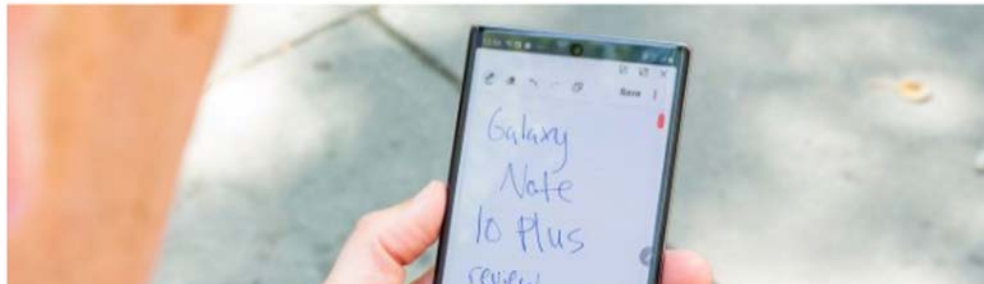 Save
Galaxy
Note
10 Plus
review